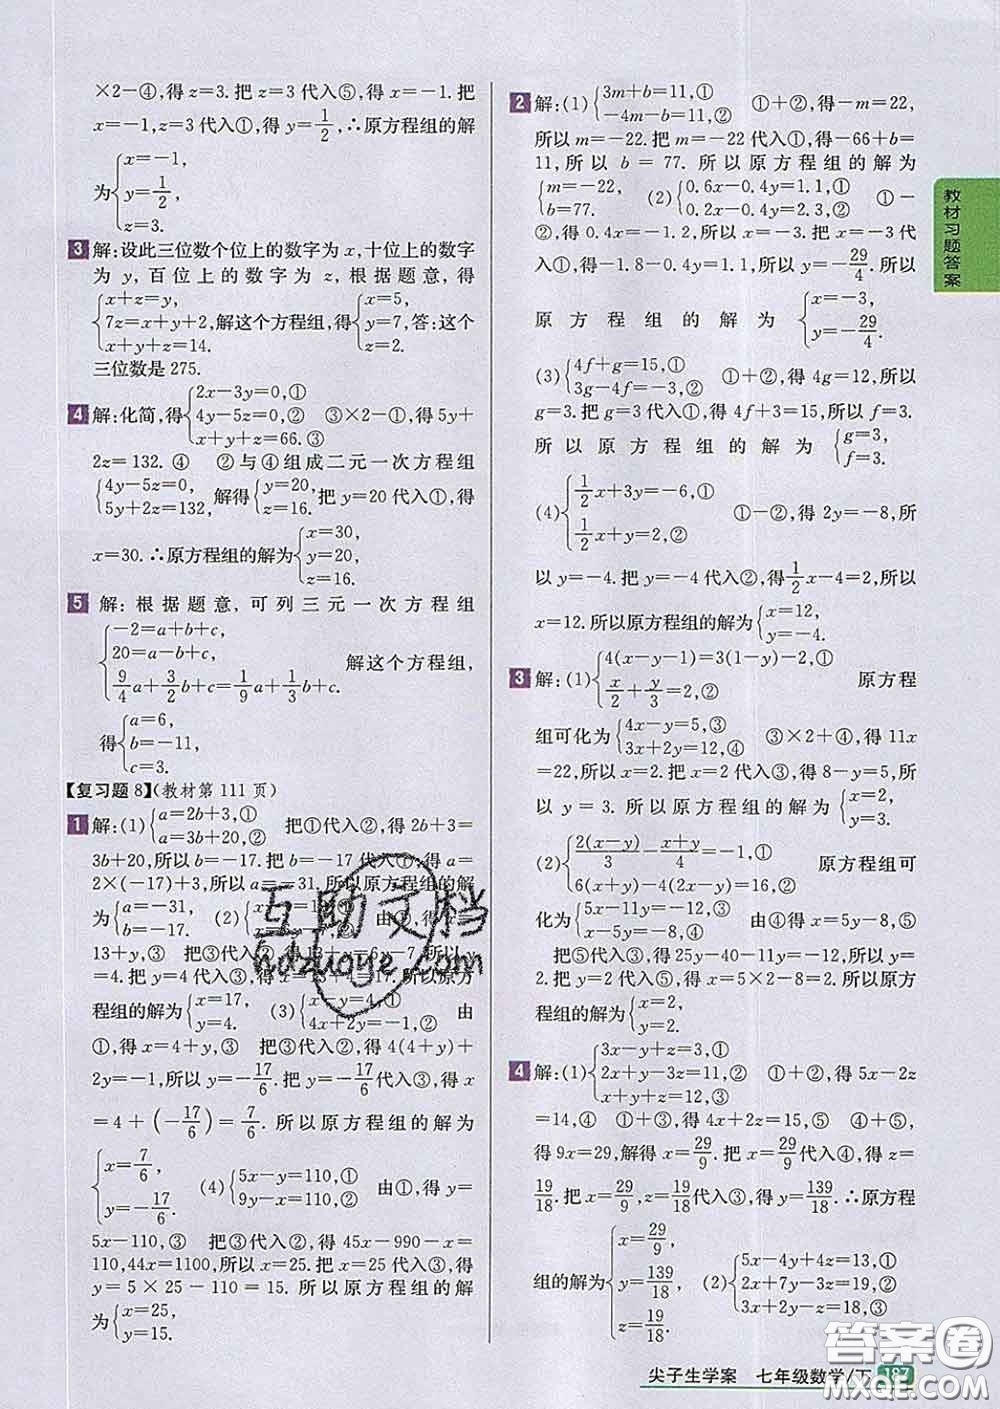 ×2-④,得z=3.把z=3代入⑤,得x=-1.把
x=-1,z=3代入①,得y=1/2,∴原方程组的解
为{x=-1,
y=1/2,
z=3.
3 解:设此三位数个位上的数字为x,十位上的数字
为y,百位上的数字为z,根据题意,得
{x+z=y,
7z=x+y+2,解这个方程组,得{x=5, y=7, z=2.答:这个
x+y+z=14.
三位数是275.
4 解:化简,得{2x-3y=0,①
4y-5z=0,② ③×2-①,得5y+
x+y+z=66.③
2z=132.④ ②与④组成二元一次方程组
{4y-5z=0, 5y+2z=132,解得{y=20, z=16.把y=20代入①,得
x=30.∴原方程组的解为{x=30, y=20, z=16.
5 解:根据题意,可列三元一次方程组
{-2=a+b+c,
20=a-b+c,
9/4a+3/2b+c=1/9a+1/3b+c. 解这个方程组,
得{a=6,
b=-11,
c=3.
【复习题8】(教材第111页)
1 解:(1){a=2b+3,① a=3b+20,② 把①代入②,得2b+3=
3b+20,所以b=-17.把b=-17代入①,得a=
2×(-17)+3,所以a=-31.所以原方程组的解
为{a=-31, b=-17. (2){ 由①,得x=
13+y,③ 把③代入②,得
=4.把y=4代入③,得x=17.所以原方
程组的解为{x=17, y=4. (3){x-y=4,① 4x+2y=-1,② 由
①,得x=4+y,③ 把③代入②,得4(4+y)+
2y=-1,所以y=-17/6.把y=-17/6代入③,得x
=4+(-17/6)=7/6.所以原方程组的解为
{x=7/6,
y=-17/6. (4){5x-y=110,① 9y-x=110,② 由①,得y=
5x-110,③ 把③代入②,得45x-990-x=
110,44x=1100,所以x=25.把x=25代入③,得
y=5×25-110=15.所以原方程组的解
为{x=25, y=15.
2 解:(1){3m+b=11,① -4m-b=11,② ①+②,得-m=22,
所以m=-22.把m=-22代入①,得-66+b=
11,所以b=77.所以原方程组的解为
{m=-22, b=77. (2){0.6x-0.4y=1.1,① 0.2x-0.4y=2.3,② ①-
②,得0.4x=-1.2,所以x=-3.把x=-3代
入①,得-1.8-0.4y=1.1,所以y=-29/4.所以
原方程组的解为{x=-3, y=-29/4.
(3){4f+g=15,① 3g-4f=-3,② ①+②,得4g=12,所以
g=3.把g=3代入①,得4f+3=15,所以f=3.
所以原方程组的解为{g=3, f=3.
(4){1/2x+3y=-6,① 1/2x+y=2,② ①-②,得2y=-8,所
以y=-4.把y=-4代入②,得1/2x-4=2,所以
x=12.所以原方程组的解为{x=12, y=-4.
3 解:(1){4(x-y-1)=3(1-y)-2,① x/2+y/3=2,② 原方程
组可化为{4x-y=5,③ 3x+2y=12,④ ③×2+④,得11x=
22,所以x=2.把x=2代入③,得8-y=5,所
以y=3.所以原方程组的解为{x=2, y=3.
(2){2(x-y)/3-(x+y)/4=-1,① 6(x+y)-4(2x-y)=16,② 原方程组可
化为{5x-11y=-12,③ x-5y=-8,④ 由④得x=5y-8,⑤
把⑤代入③,得25y-40-11y=-12,所以y=
2.把y=2代入⑤,得x=5×2-8=2.所以原方
程组的解为{x=2, y=2.
4 解:(1){3x-y+z=3,①
2x+y-3z=11,② ①+②,得5x-2z
x+y+z=12,③
=14,④ ①+③,得4x+2z=15,⑤ ④+⑤,
得9x=29,解得x=29/9.把x=29/9代入④,得z=
19/18.把x=29/9,z=19/18代入③,得y=139/18.∴原方程
组的解为{x=29/9, y=139/18, z=19/18. (2){5x-4y+4z=13,① 2x+7y-3z=19,② 3x+2y-z=18,③
教材习题答案
尖子生学案 七年级数学/下 187
互助文档
hdzuoye.com
答案圈
MXQE.COM